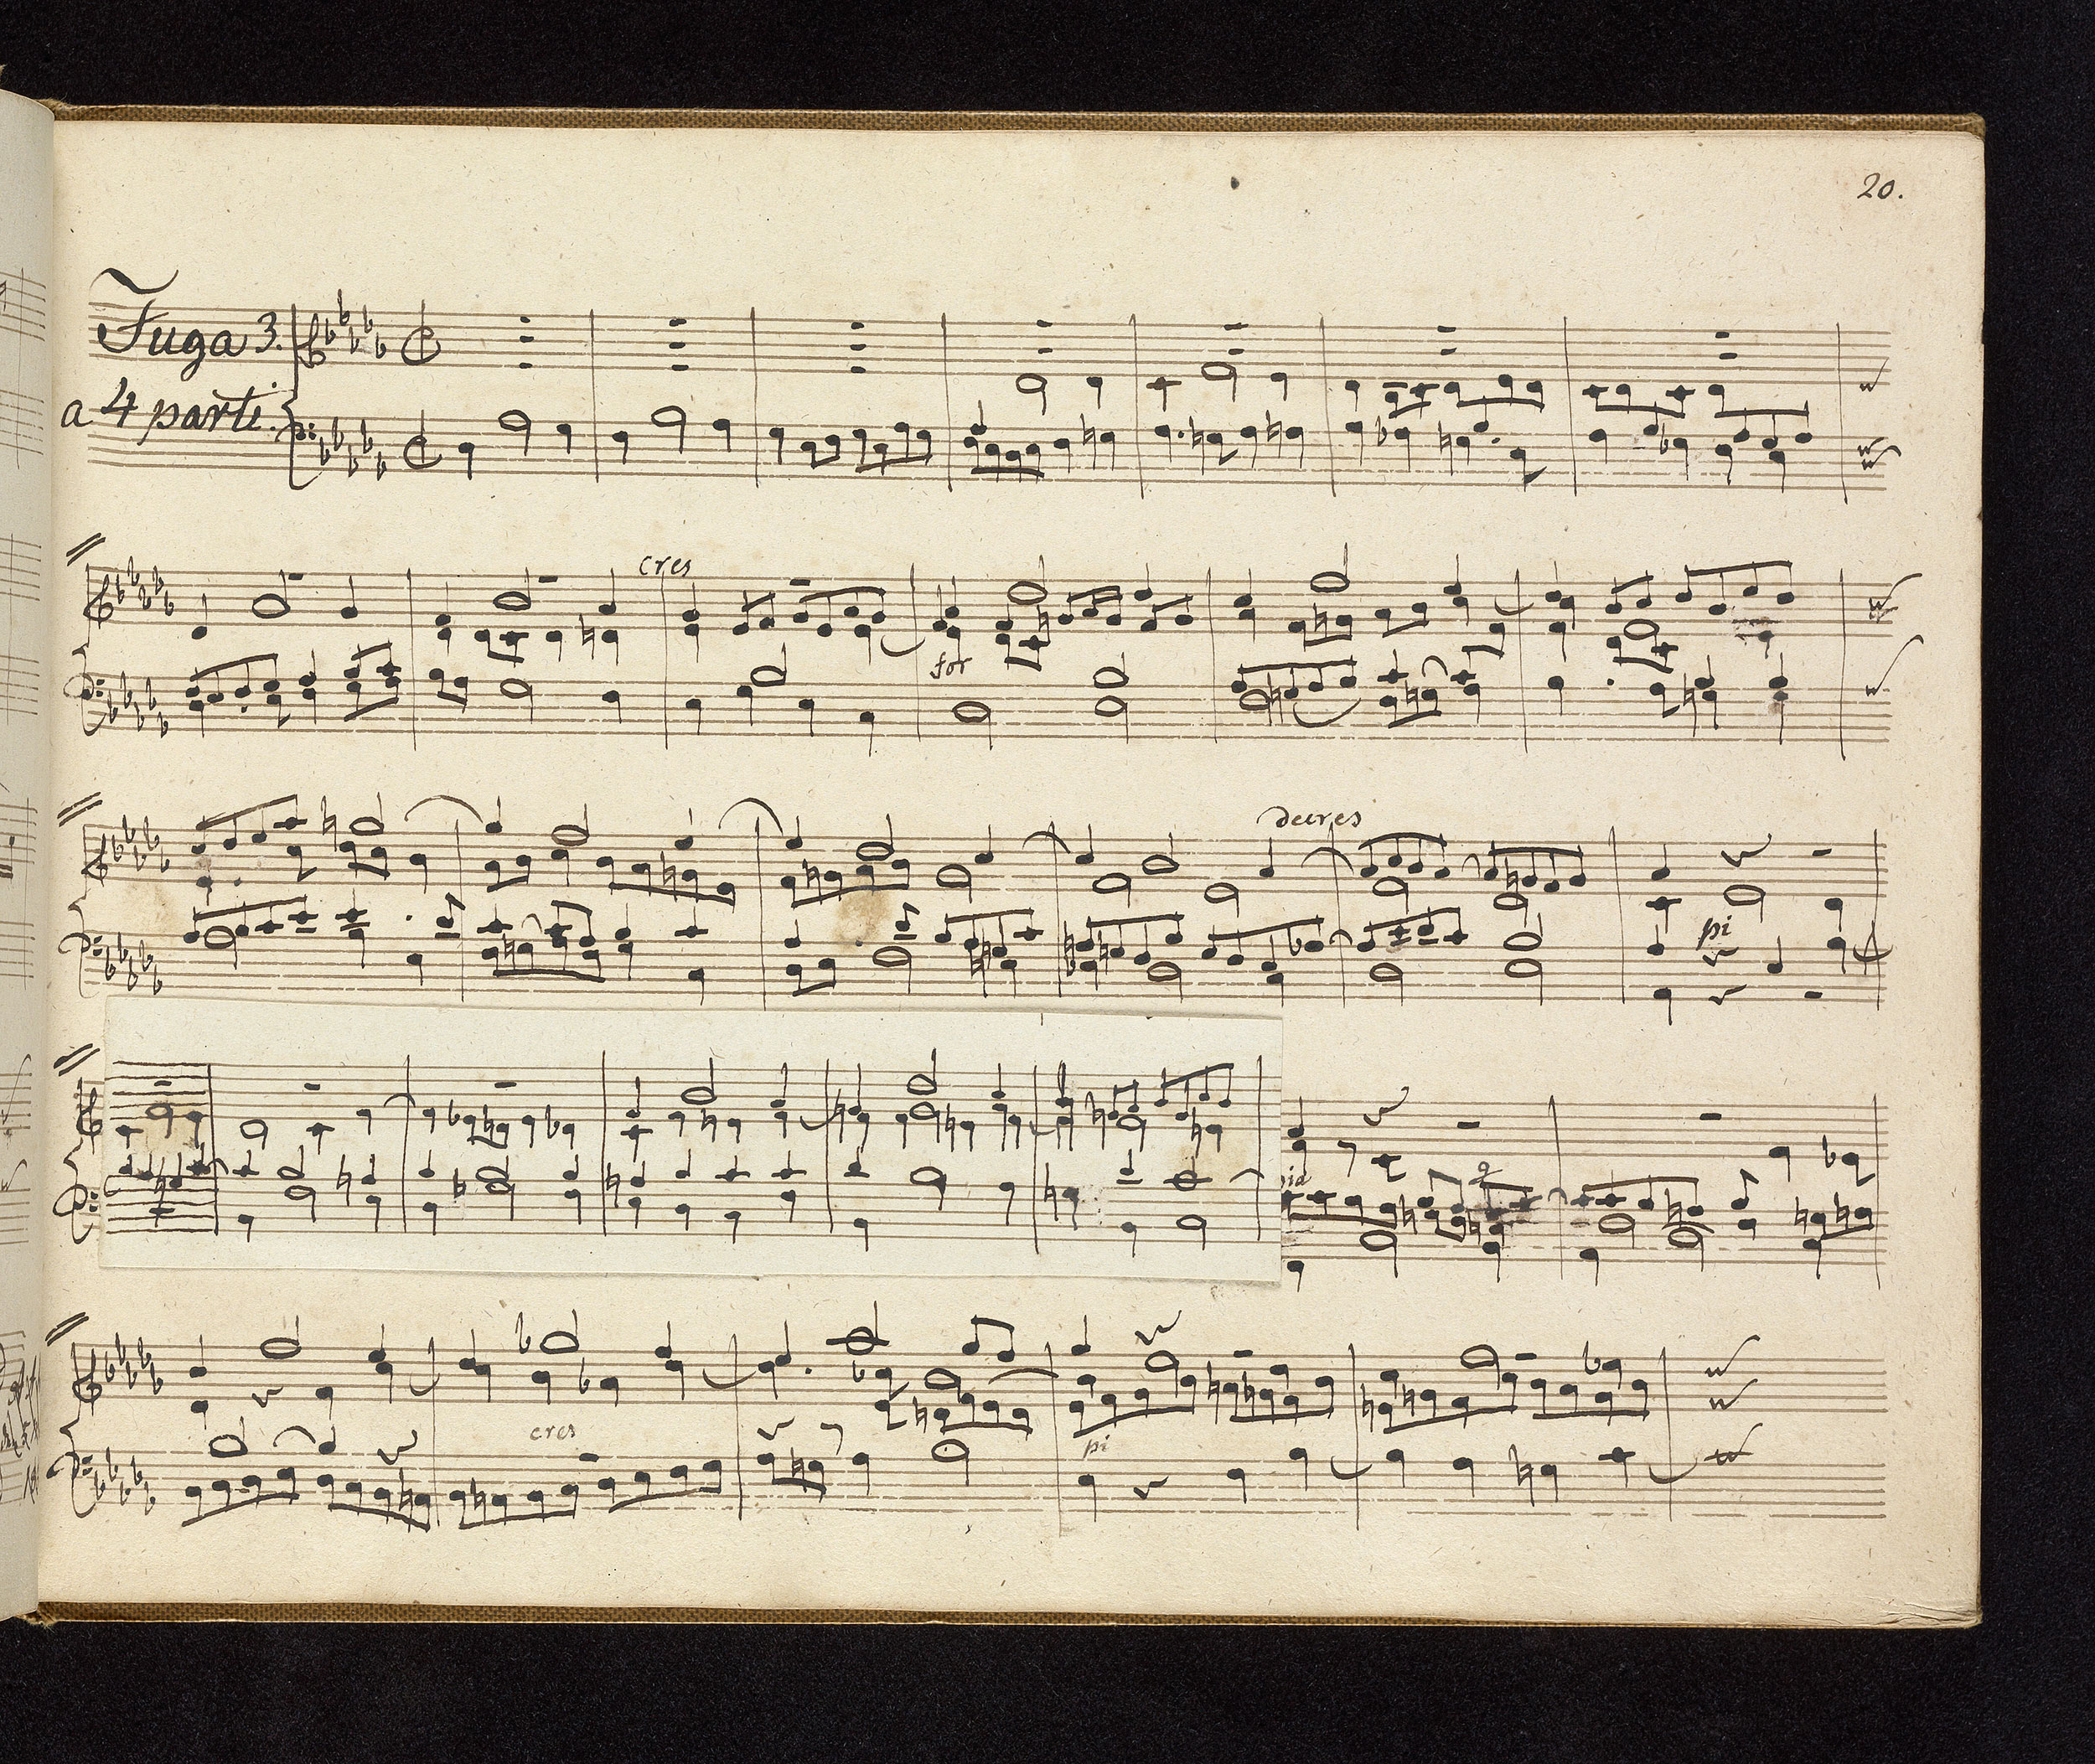 20.
Fuga 3.
a 4 parti.
cres
for
decres
pi
cres
pi